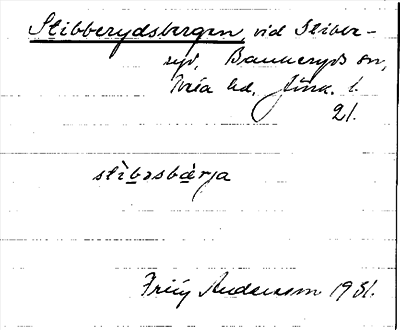 Stibberydsbergen vid Stiber-
ryd, Bankeryds sn,
Tveta hd. Jönk. l.
21.
stìbəsbærja
Frejy Andersson 1931.